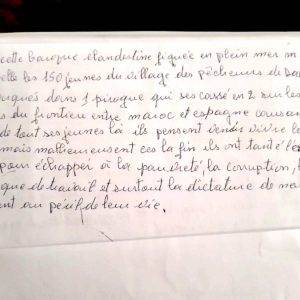 cette baroque clandestine figuée en plein mer
elle les 150 jeunes du village des pêcheurs de
dans 1 pirogue qui ses cassé en 2 sur les
du frontieu entre maroc et espagne
de tout ses jeunes là ils pensent
mais malheureusent ces la fin ils ont tanté
pour échapper à la pauvreté, la corruption,
que de travail et surtout la dictature de
au péril de leur vie.